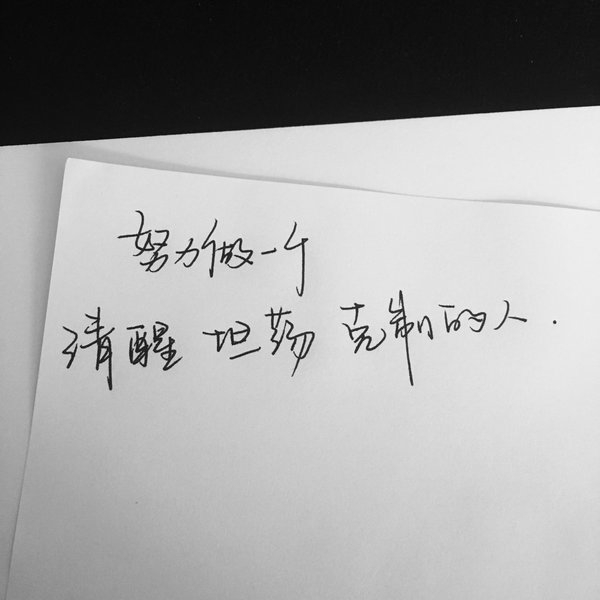 努力做一个
清醒 坦荡 克制的人.